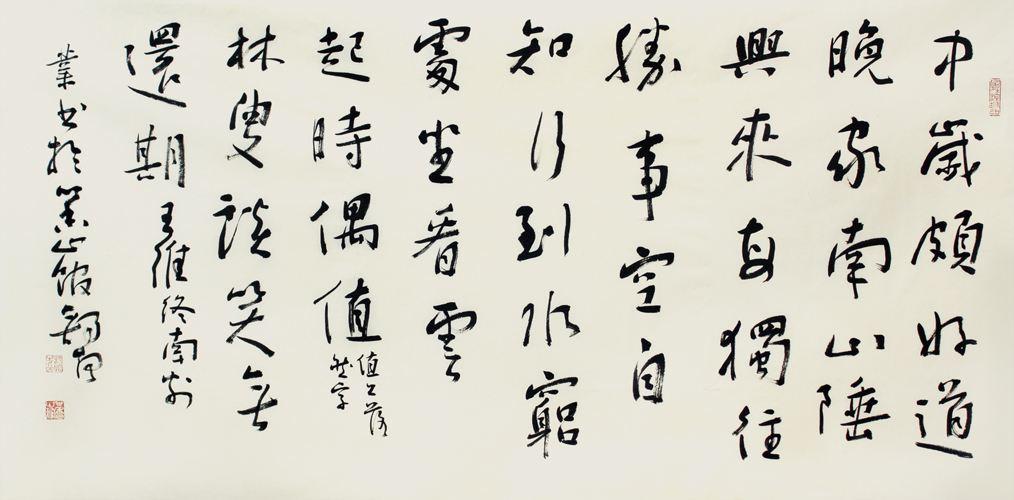 中歲頗好道
晚家南山陲
興來每獨往
勝事空自
知行到水窮
處坐看雲
起時偶值
值上落
然字
林叟談笑無
還期王維終南別
業書於山館